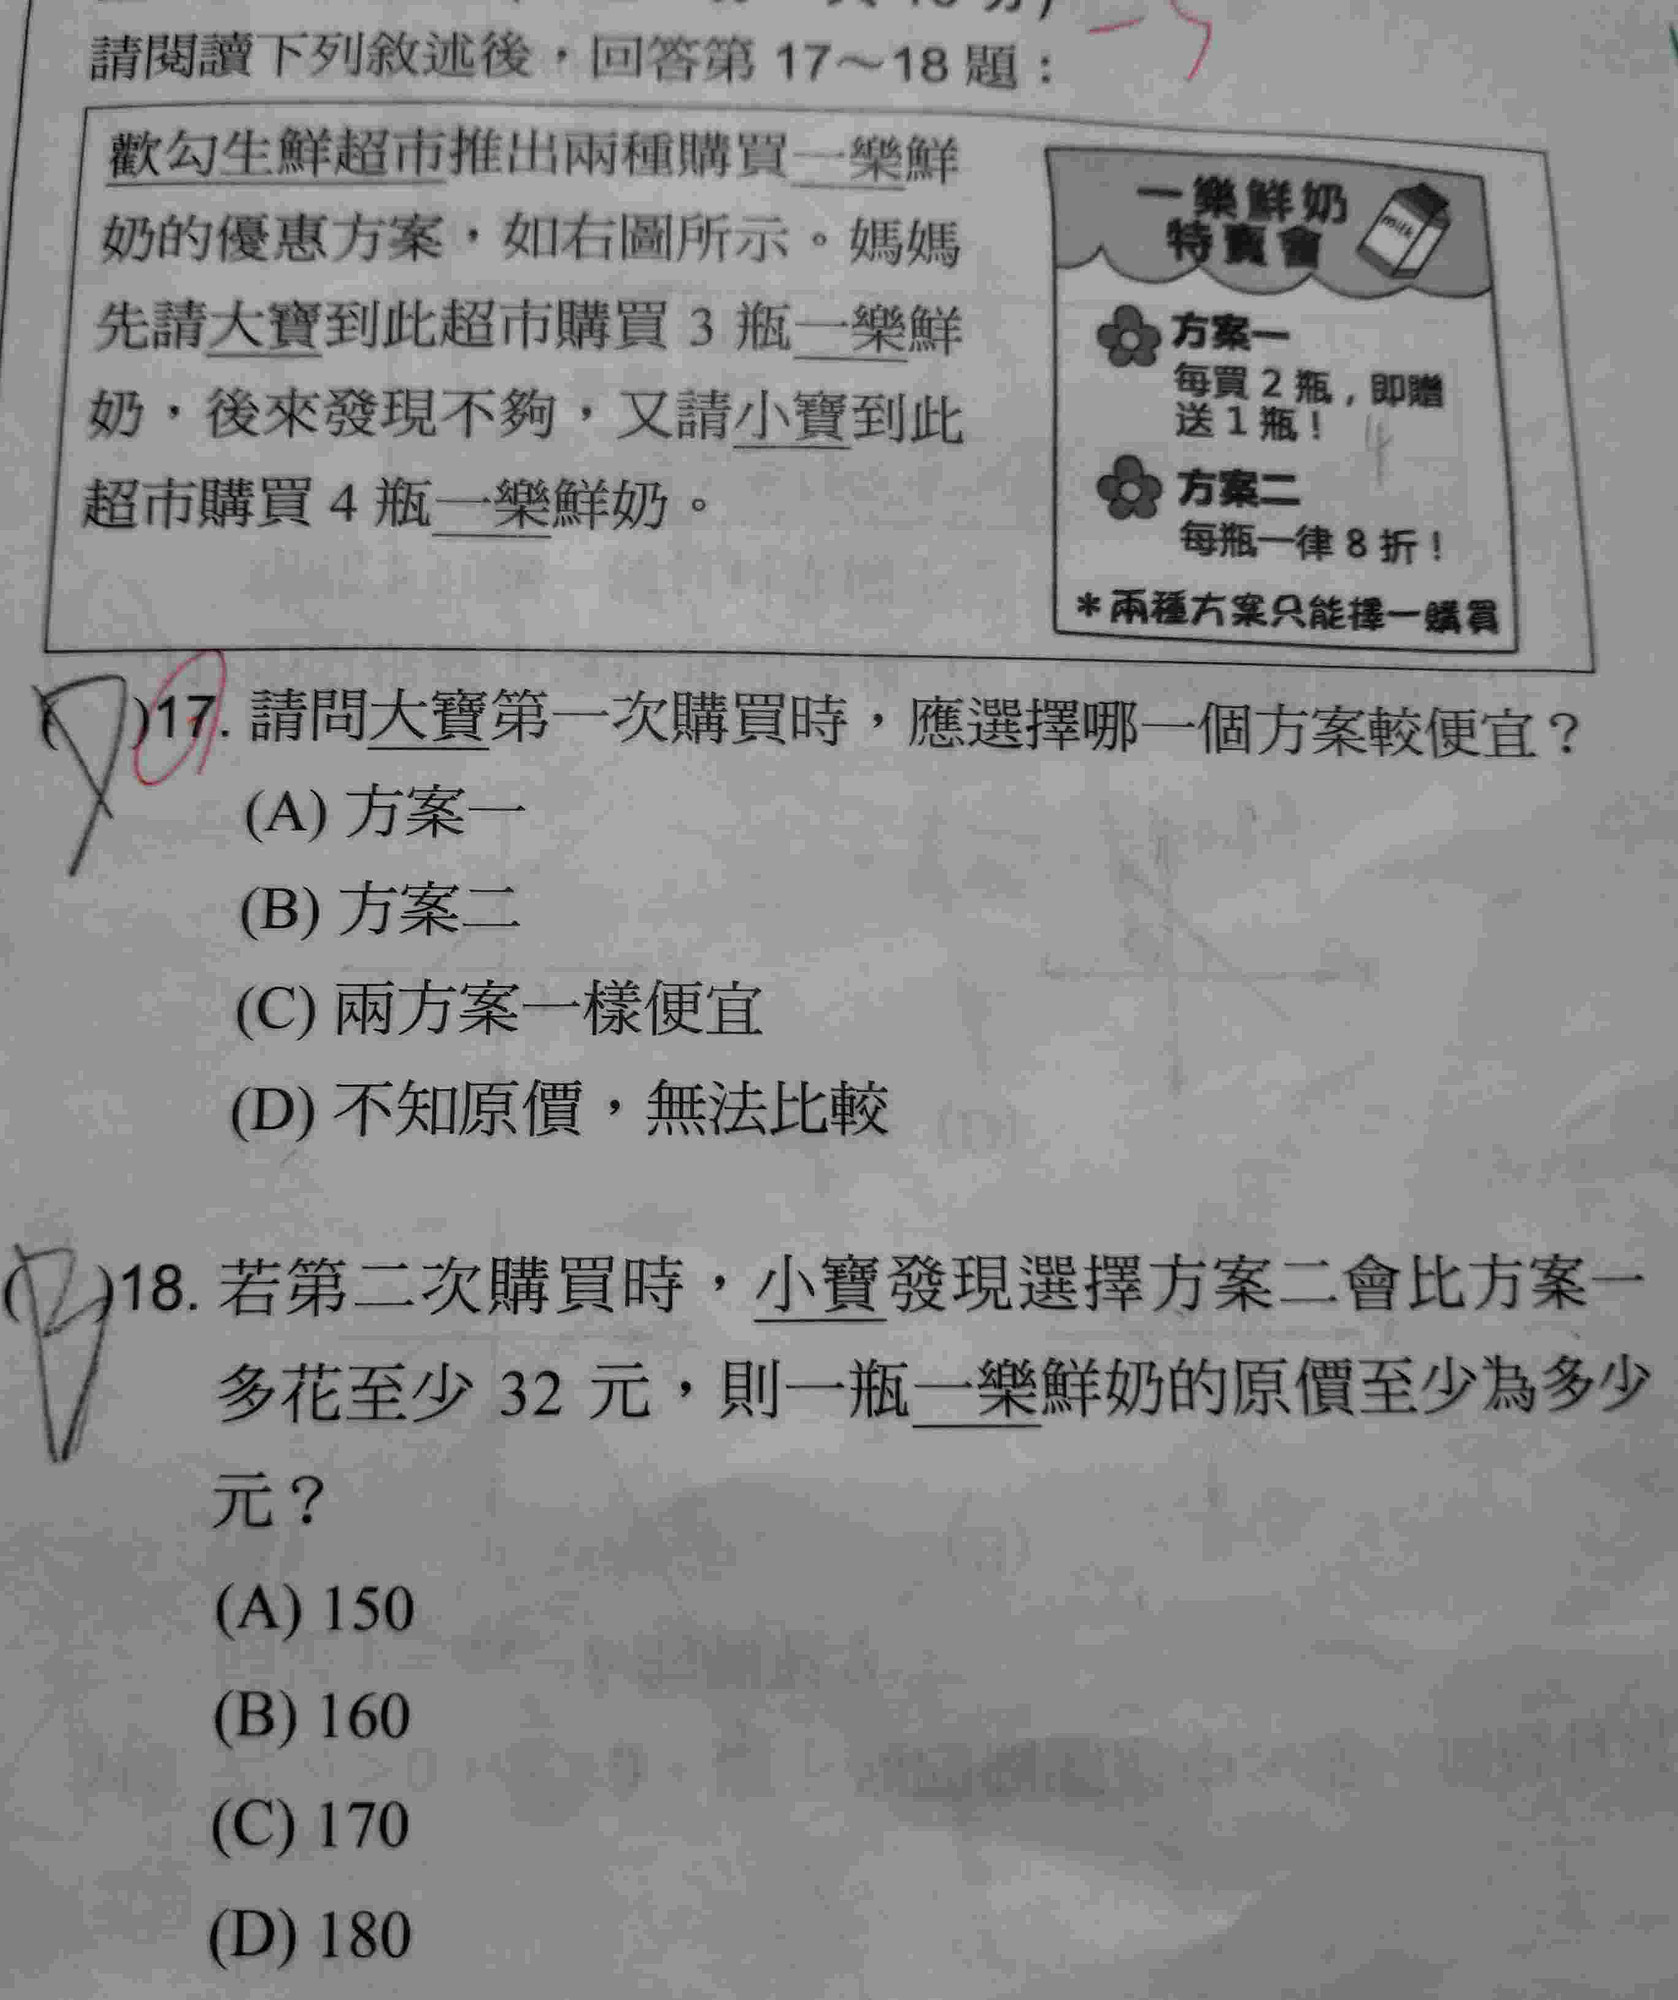 請閱讀下列敘述後，回答第 17～18 題：
歡勾生鮮超市推出兩種購買一樂鮮
奶的優惠方案，如右圖所示。媽媽
先請大寶到此超市購買 3 瓶一樂鮮
奶，後來發現不夠，又請小寶到此
超市購買 4 瓶一樂鮮奶。
一樂鮮奶
特賣會
milk
方案一
每買 2 瓶，即贈
送 1 瓶！
方案二
每瓶一律 8 折！
＊兩種方案只能擇一購買
( )17. 請問大寶第一次購買時，應選擇哪一個方案較便宜？
(A) 方案一
(B) 方案二
(C) 兩方案一樣便宜
(D) 不知原價，無法比較
( )18. 若第二次購買時，小寶發現選擇方案二會比方案一
多花至少 32 元，則一瓶一樂鮮奶的原價至少為多少
元？
(A) 150
(B) 160
(C) 170
(D) 180